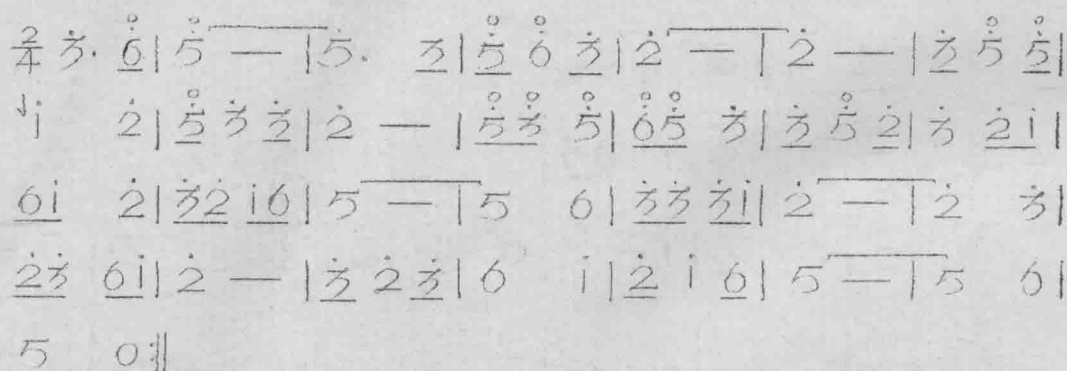 2/4 3̇· 6̇ | 5̇ — | 5̇. 3 | 5̇ 6̇ 3̇ | 2̇ — | 2̇ — | 3̇ 5̇ 5̇ |
i 2̇ | 5̇ 3̇ 3̇ | 2̇ — | 5̇3̇ 5̇ | 6̇5̇ 3̇ | 3̇ 5̇ 2̇ | 3̇ 2̇i |
6i 2̇ | 3̇2̇ i6 | 5 — | 5 6 | 3̇3̇ 3̇i | 2̇ — | 2̇ 3̇ |
2̇3̇ 6i | 2̇ — | 3̇ 2̇ 3̇ | 6 i | 2̇ i 6 | 5 — | 5 6 |
5 0 :‖